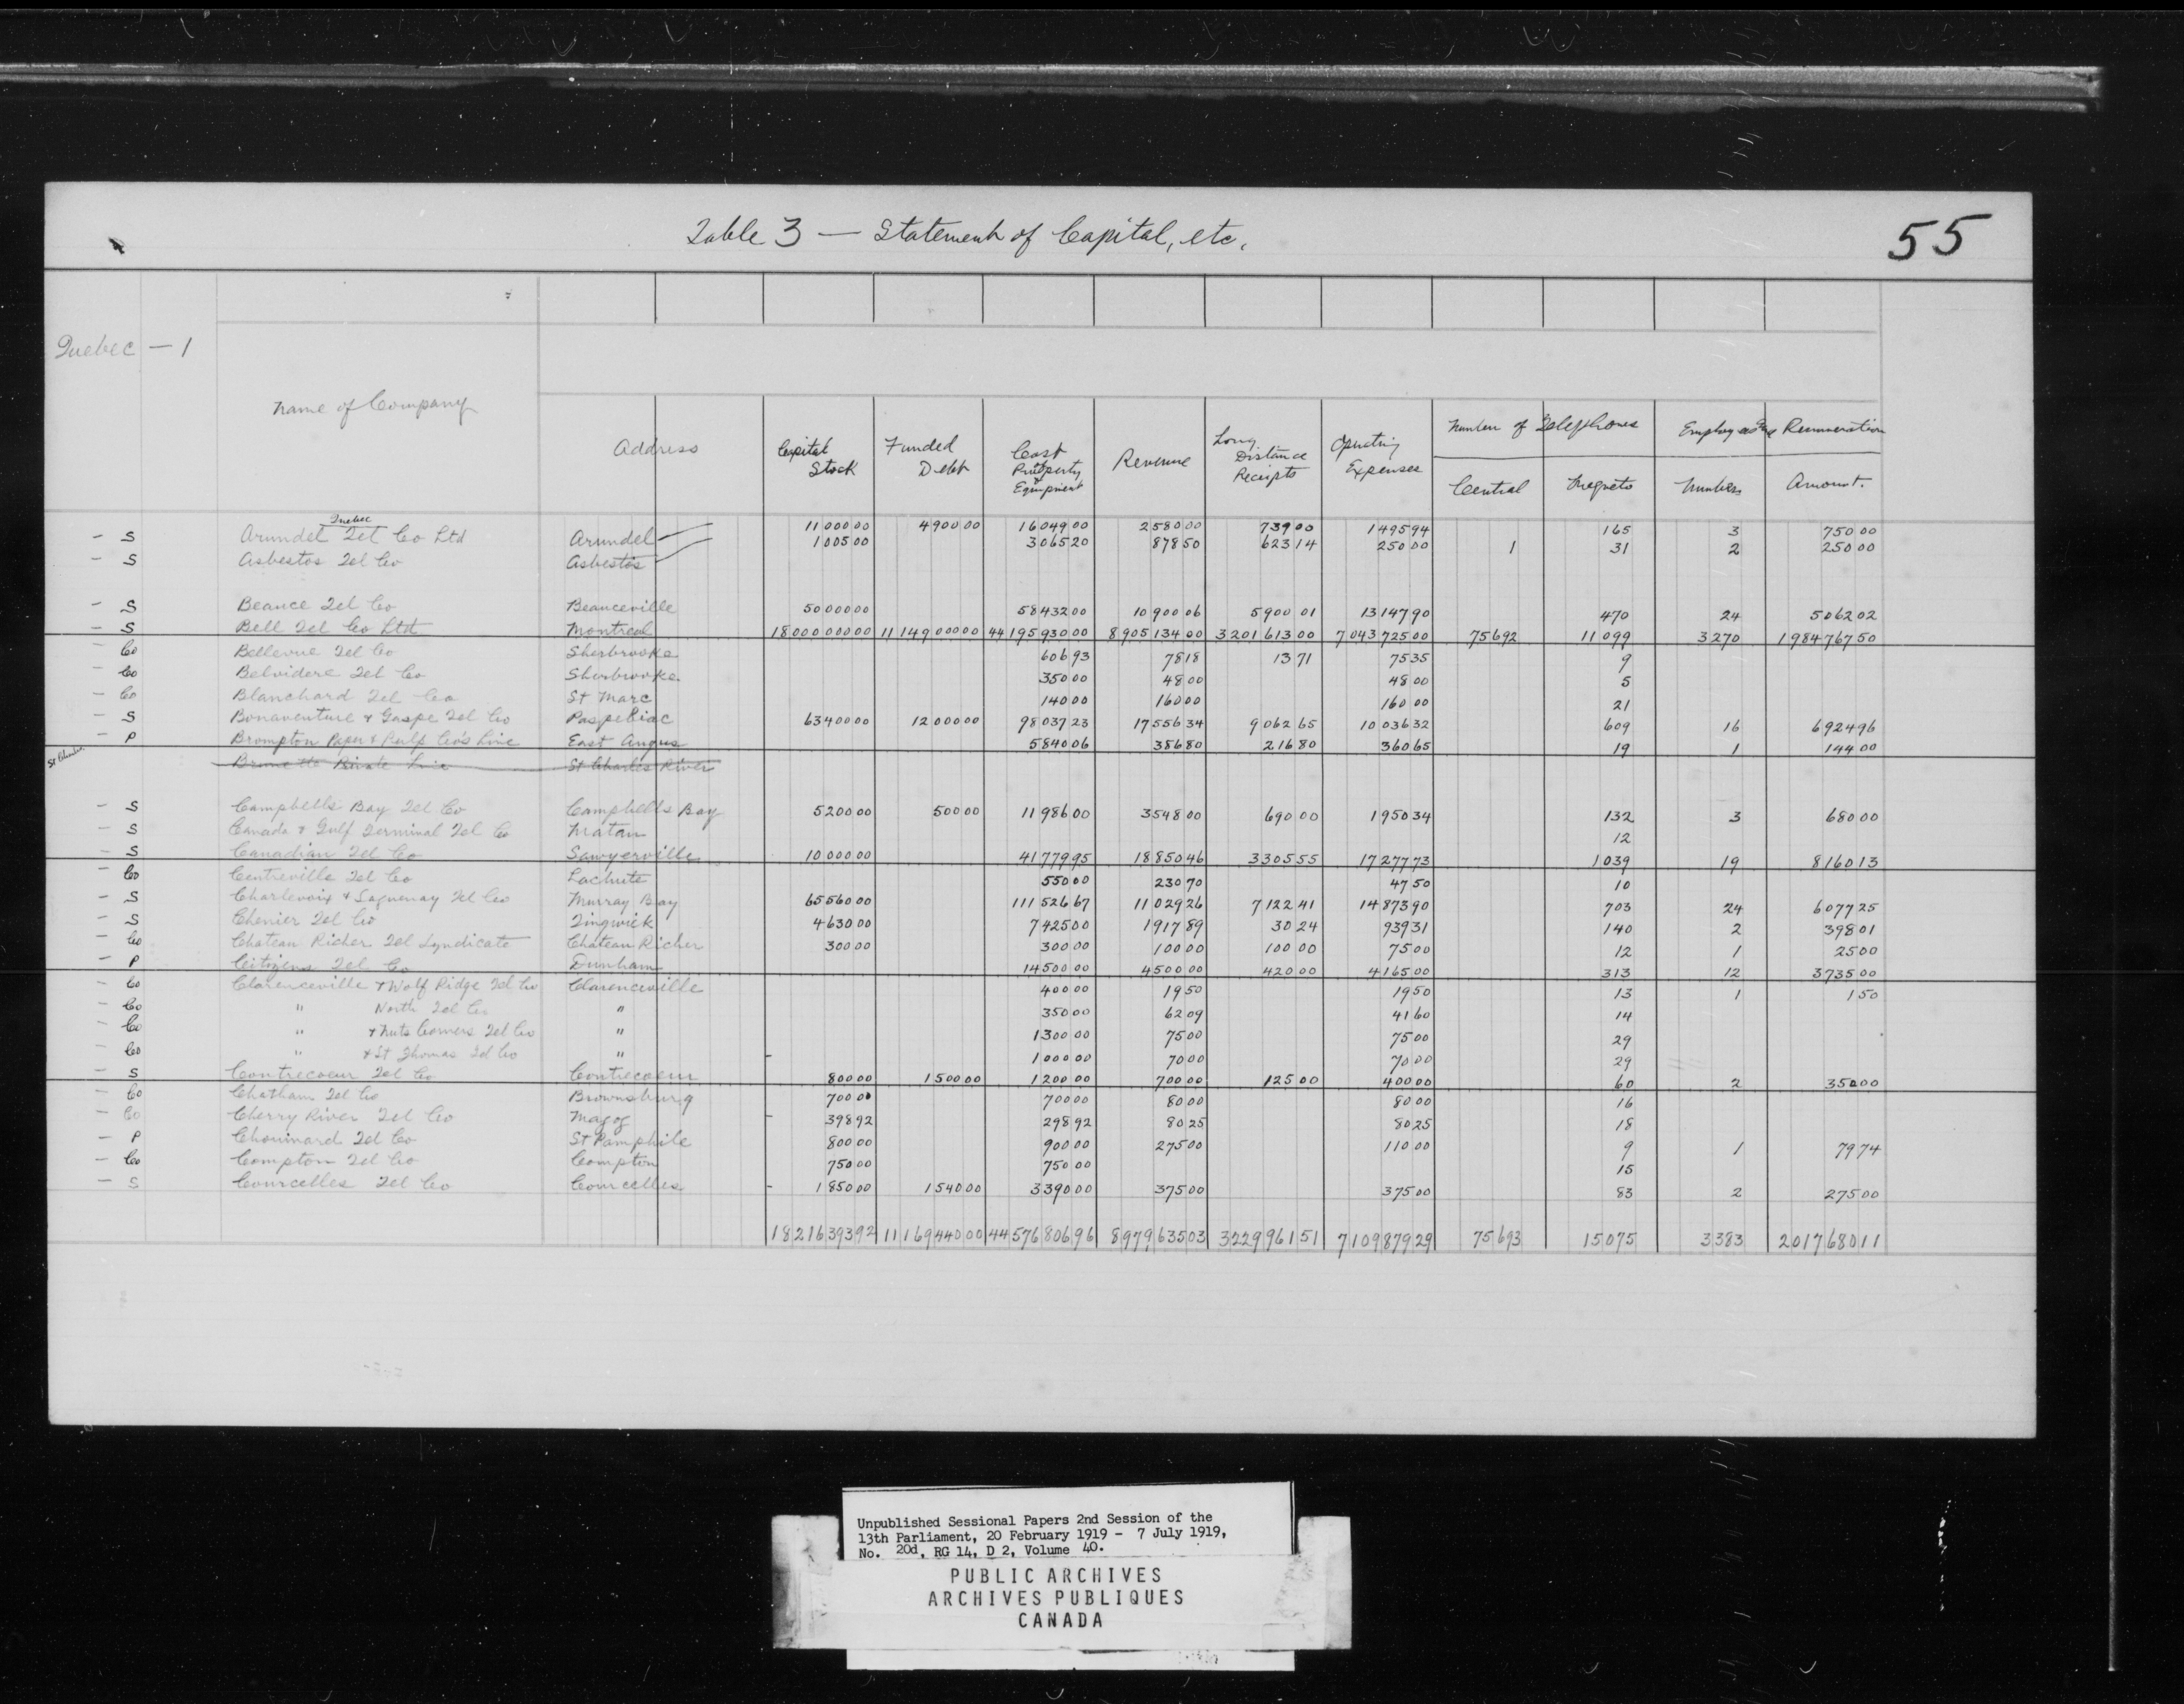 Table 3 — Statement of Capital, etc.
55
Quebec — 1
Name of Company
Address
Capital Stock
Funded Debt
Cost Property & Equipment
Revenue
Long Distance Receipts
Operating Expenses
Number of Telephones
Central
Magneto
Employees Remuneration
Numbers
Amount.
Quebec
- S Arundel Tel Co Ltd Arundel 11000 00 4900 00 16049 00 2580 00 739 00 1495 94 165 3 750 00
- S Asbestos Tel Co Asbestos 1005 00 3065 20 878 50 623 14 250 00 1 31 2 250 00
- S Beance Tel Co Beanceville 50000 00 58432 00 10900 06 5900 01 13147 90 470 24 5062 02
- S Bell Tel Co Ltd Montreal 18000000 00 11149000 00 44195930 00 8905134 00 3201613 00 7043725 00 75692 11099 3270 1984767 50
Co Bellevue Tel Co Sherbrooke 606 93 78 18 13 71 75 35 9
- Co Belvidere Tel Co Sherbrooke 350 00 48 00 48 00 5
- Co Blanchard Tel Co St Marc 140 00 160 00 160 00 21
- S Bonaventure & Gaspe Tel Co Paspebiac 63400 00 12000 00 98037 23 17556 34 9062 65 10036 32 609 16 6924 96
- P Brompton Paper & Pulp Co's Line East Angus 5840 06 386 80 216 80 360 65 19 1 144 00
St Charles
Private Line St Charles River
- S Campbells Bay Tel Co Campbells Bay 5200 00 500 00 11986 00 3548 00 690 00 1950 34 132 3 680 00
- S Canada & Gulf Terminal Tel Co Matan 12
- S Canadian Tel Co Sawyerville 10000 00 41779 95 18850 46 3305 55 17277 73 1039 19 8160 13
- Co Centreville Tel Co Lachute 550 00 230 70 47 50 10
- S Charlevoix & Saguenay Tel Co Murray Bay 65560 00 111526 67 11029 26 7122 41 14873 90 703 24 6077 25
- S Chenier Tel Co Tingwick 4630 00 7425 00 1917 89 30 24 939 31 140 2 398 01
- Co Chateau Richer Tel Syndicate Chateau Richer 300 00 300 00 100 00 100 00 75 00 12 1 25 00
- P Citizens Tel Co Dunham 14500 00 4500 00 420 00 4165 00 313 12 3735 00
- Co Clarenceville & Wolf Ridge Tel Co Clarenceville 400 00 19 50 19 50 13 1 1 50
- Co " North Tel Co " 350 00 62 09 41 60 14
- Co " & Nuts Corners Tel Co " 1300 00 75 00 75 00 29
- Co " & St Thomas Tel Co " - 1000 00 70 00 70 00 29
- S Contrecoeur Tel Co Contrecoeur 800 00 1500 00 1200 00 700 00 125 00 400 00 60 2 350 00
- Co Chatham Tel Co Brownsburg 700 00 700 00 80 00 80 00 16
- Co Cherry River Tel Co Magog - 398 92 298 92 80 25 80 25 18
- P Chouinard Tel Co St Pamphile 800 00 900 00 275 00 110 00 9 1 79 74
- Co Compton Tel Co Compton 750 00 750 00 15
- S Courcelles Tel Co Courcelles - 1850 00 1540 00 3390 00 375 00 375 00 83 2 275 00
18216393 92 11169440 00 44576806 96 8979635 03 3229961 51 7109879 29 75693 15075 3383 2017680 11
Unpublished Sessional Papers 2nd Session of the
13th Parliament, 20 February 1919 - 7 July 1919,
No. 20d, RG 14, D 2, Volume 40.
PUBLIC ARCHIVES
ARCHIVES PUBLIQUES
CANADA